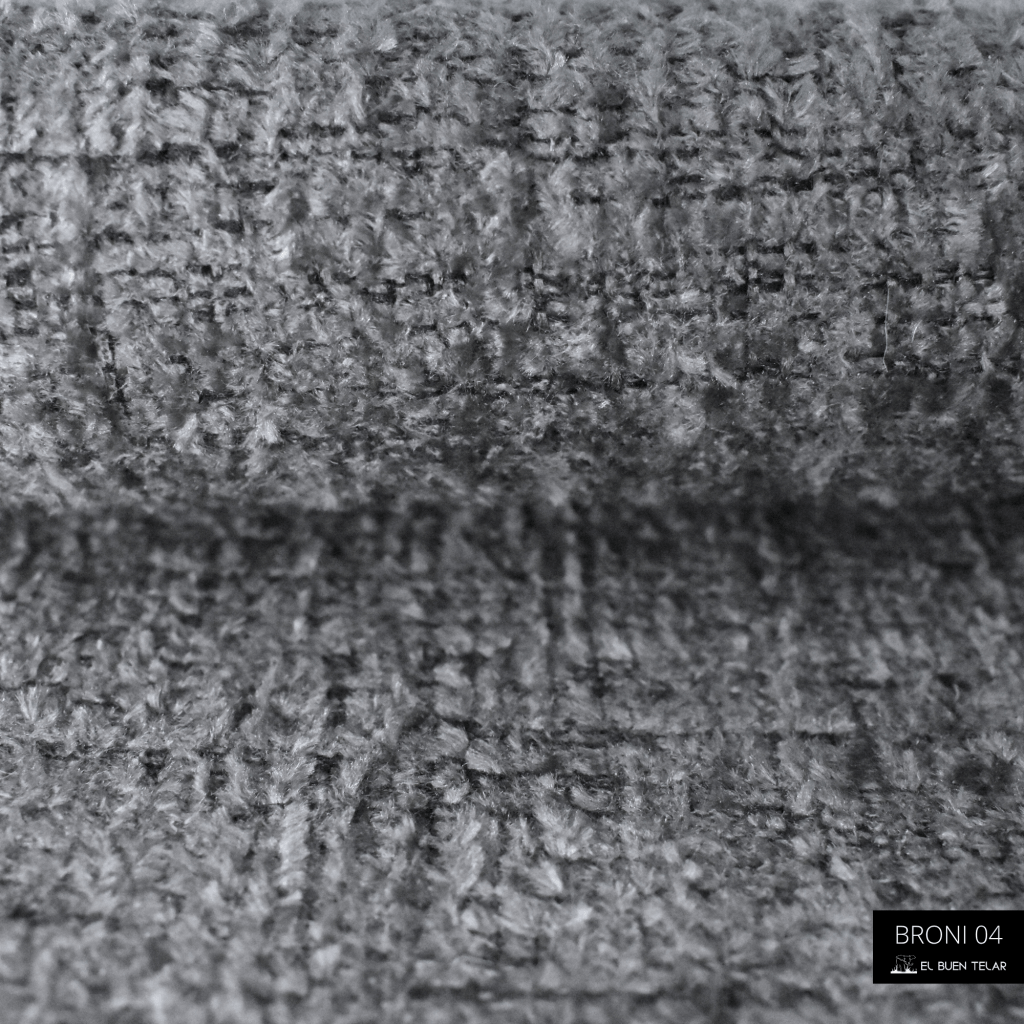 BRONI 04
EL BUEN TELAR